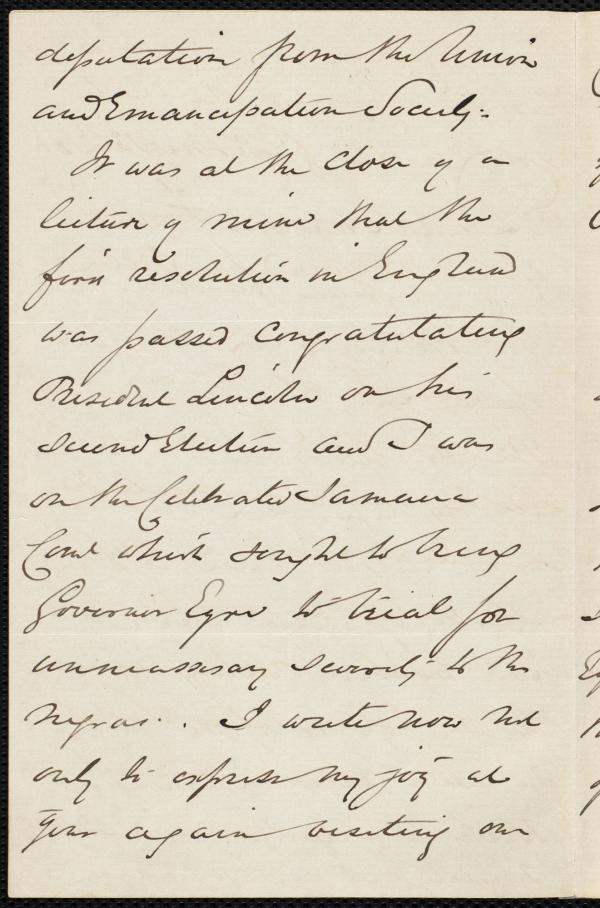 deputation from the Union
and Emancipation Society.
It was at the close of a
lecture of mine that the
first resolution in England
was passed congratulating
President Lincoln on his
second Election and I was
on the Celebrated Jamaica
Com which sought to bring
Governor Eyre to trial for
unnecessary severity to the
negroes. I write now not
only to express my joy at
your again visiting our